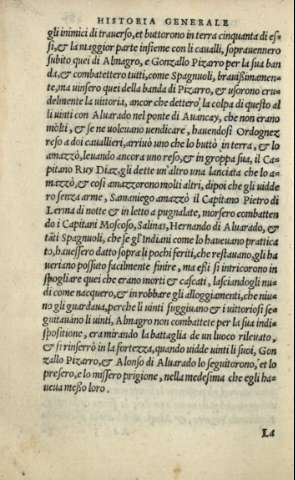 HISTORIA GENERALE
gli inimici di trauerso, et buttorono in terra cinquanta di es-
si, & la maggior parte insieme con li caualli, soprauennero
subito quei di Almagro, e Gonzallo Pizarro per la sua ban
da, & combattettero tutti, come Spagnuoli, brauissimamen-
te, ma uinsero quei della banda di Pizarro, & usorono cru-
delmente la uittoria, ancor che dettero la colpa di questo al
li uinti con Aluarado nel ponte di Auancay, che non erano
molti, & se ne uoleuano uendicare, hauendosi Ordognez
reso a doi cauallieri, arriuò uno che lo buttò in terra, & lo
amazzò, leuando ancora uno reso, & in groppa sua, il Ca
pitano Ruy Diaz, gli dette un'altro una lanciata che lo a-
mazzò, & così amazzorono molti altri, dipoi che gli uidde
ro senza arme, Samaniego amazzò il Capitano Pietro di
Lerma di notte & in letto a pugnalate, morsero combatten
do i Capitani Moscoso, Salinas, Hernando di Aluarado, &
tāti Spagnuoli, che se gl'Indiani come lo haueuano pratica
to, hauessero datto sopra li pochi feriti, che restauano, gli ha
ueriano possuto facilmente finire, ma essi si intricorono in
spogliare quei che erano morti & cascati, lasciandogli nu-
di come nacquero, & in robbare gli alloggiamenti, che niu-
no gli guardaua, perche li uinti fuggiuano & i uittoriosi se-
guitauano li uinti, Almagro non combattete per la sua indi-
spositione, era mirando la battaglia de un luoco rileuato,
& si rinserrò in la fortezza, quando uidde uinti li suoi, Gon
zallo Pizarro, & Alonso di Aluarado lo seguitorono, et lo
presero, e lo missero prigione, nella medesima che egli ha-
ueua messo loro.
La